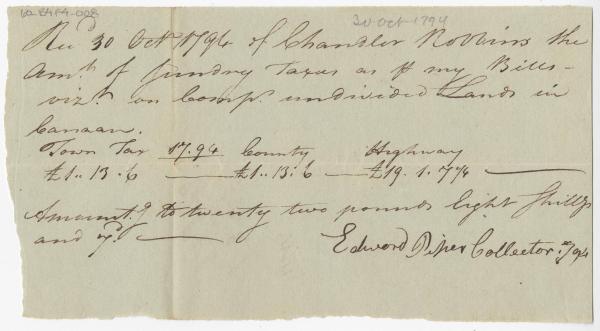 30 Oct 1794
Rec'd 30 Octr. 1794 of Chandler Robbins the
Amt. of Sundry Taxes as ⅌ my Bills
viz.t on Comps. undivided Lands in
Canaan.
Town Tax 17.94 County Highway
£1.. 13. 6 — £1.. 13: 6 — £19. 1. 7¾ —
Amount.g to twenty two pounds eight Shillgs
and 7d —
Edward Piper Collector